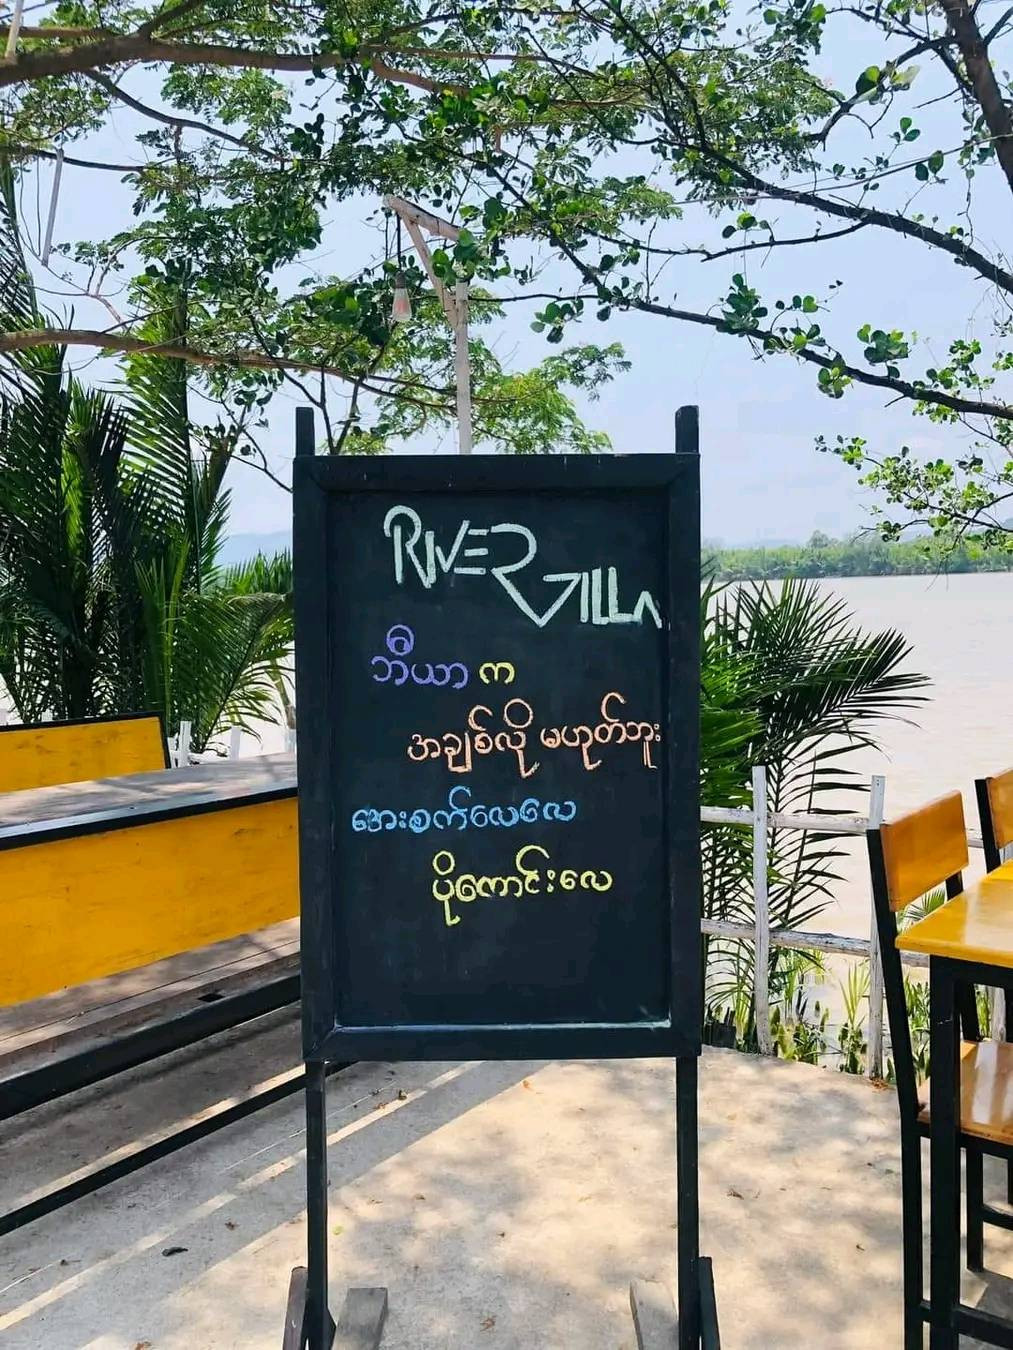 RIVER VILLA
ဘီယာ က
အချစ်လို မဟုတ်ဘူး
အေးစက်လေလေ
ပိုကောင်းလေ